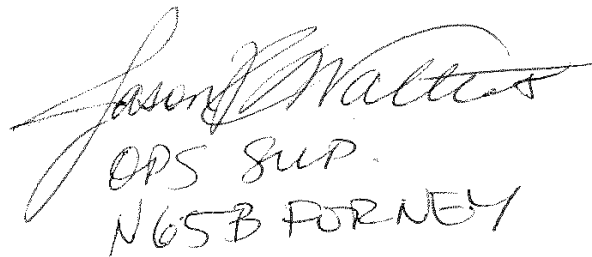 Jason K Walters
OPS SUP.
N65B FORNEY